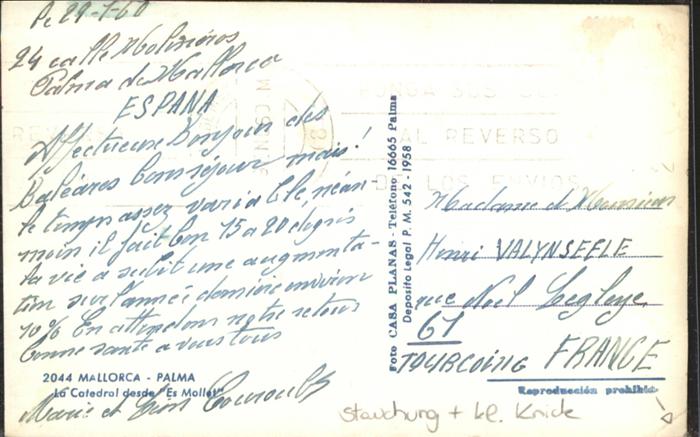 Le 29-1-60
24 calle Molineros
Palma de Mallorca
ESPANA
Affectueux Bonjour des
Baléares bon séjour mais!
le temps assez variable, néan
moin il fait bon 15 a 20 degrés
la vie a subit une augmenta-
tion sur l'année dernière environ
10% En attendons notre retour
bonne sante a vous tous
Marie et Léon
2044 MALLORCA - PALMA
La Catedral desde "Es Mollet"
Foto CASA PLANAS - Teléfono 16665 Palma
Deposito Legal P. M. 542 - 1958
PONGA SUS
AL REVERSO
DE LOS ENVIOS
Madame et Monsieur
Henri VALYNSEELE
rue Noël Legleye
61
TOURCOING FRANCE
Reproducción prohibida
Stauchung + kl. Knick